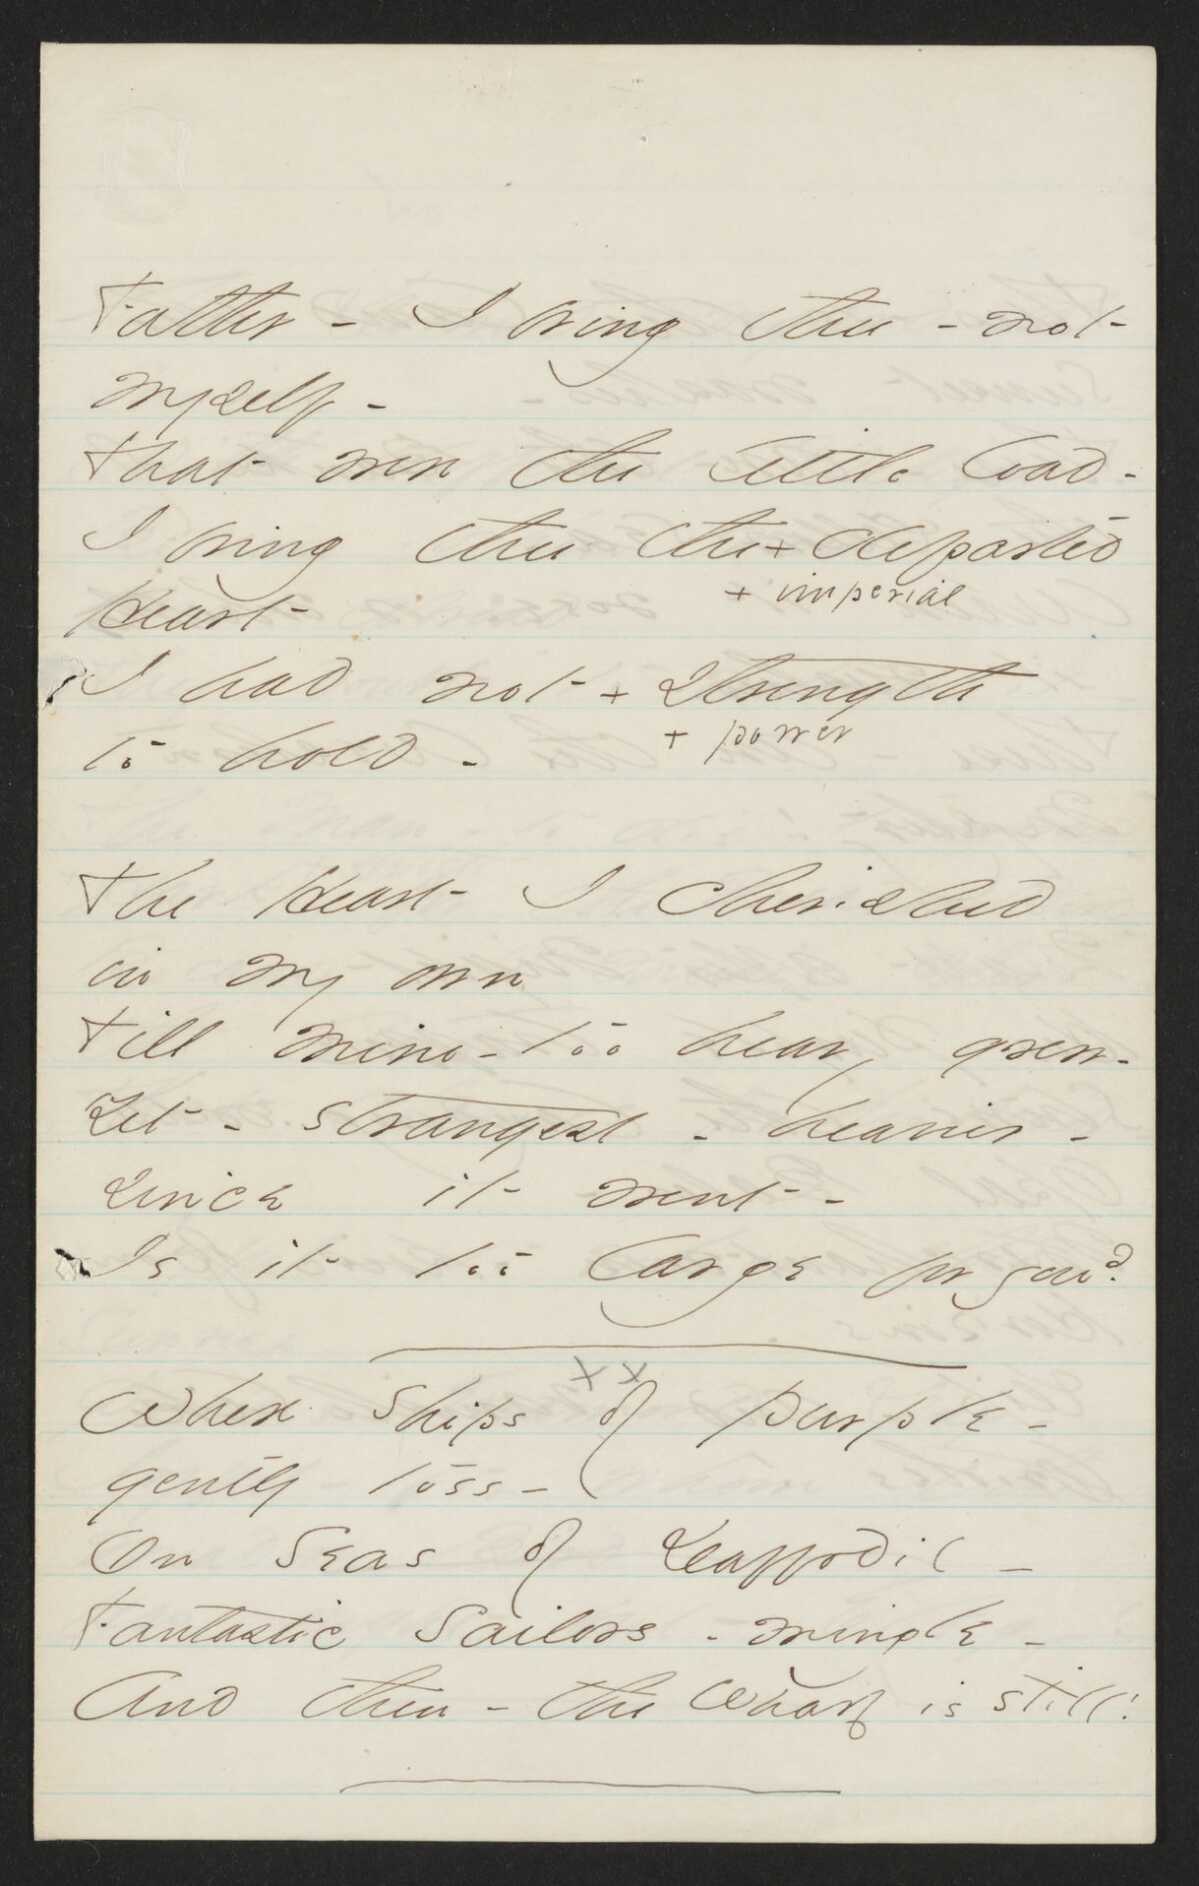 Father - I bring thee - not
myself -
That were the little load -
I bring thee the + departed
+ imperial
Heart
I had not + strength
+ power
to hold -
The Heart I cherished
in my own
Till mine - too heavy grew -
Yet - strangest - heavier -
since it went -
Is it too large for you?
x x
Where Ships of Purple -
gently toss -
On Seas of Daffodil -
Fantastic Sailors - mingle -
And then - the Wharf is still!